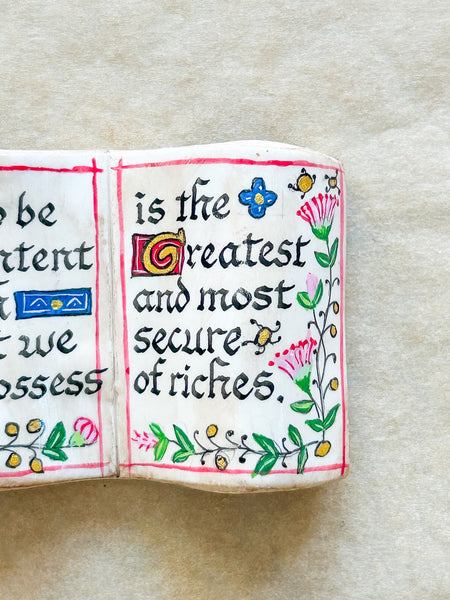 o be
ntent
h
t we
ossess
is the
Greatest
and most
secure
of riches.